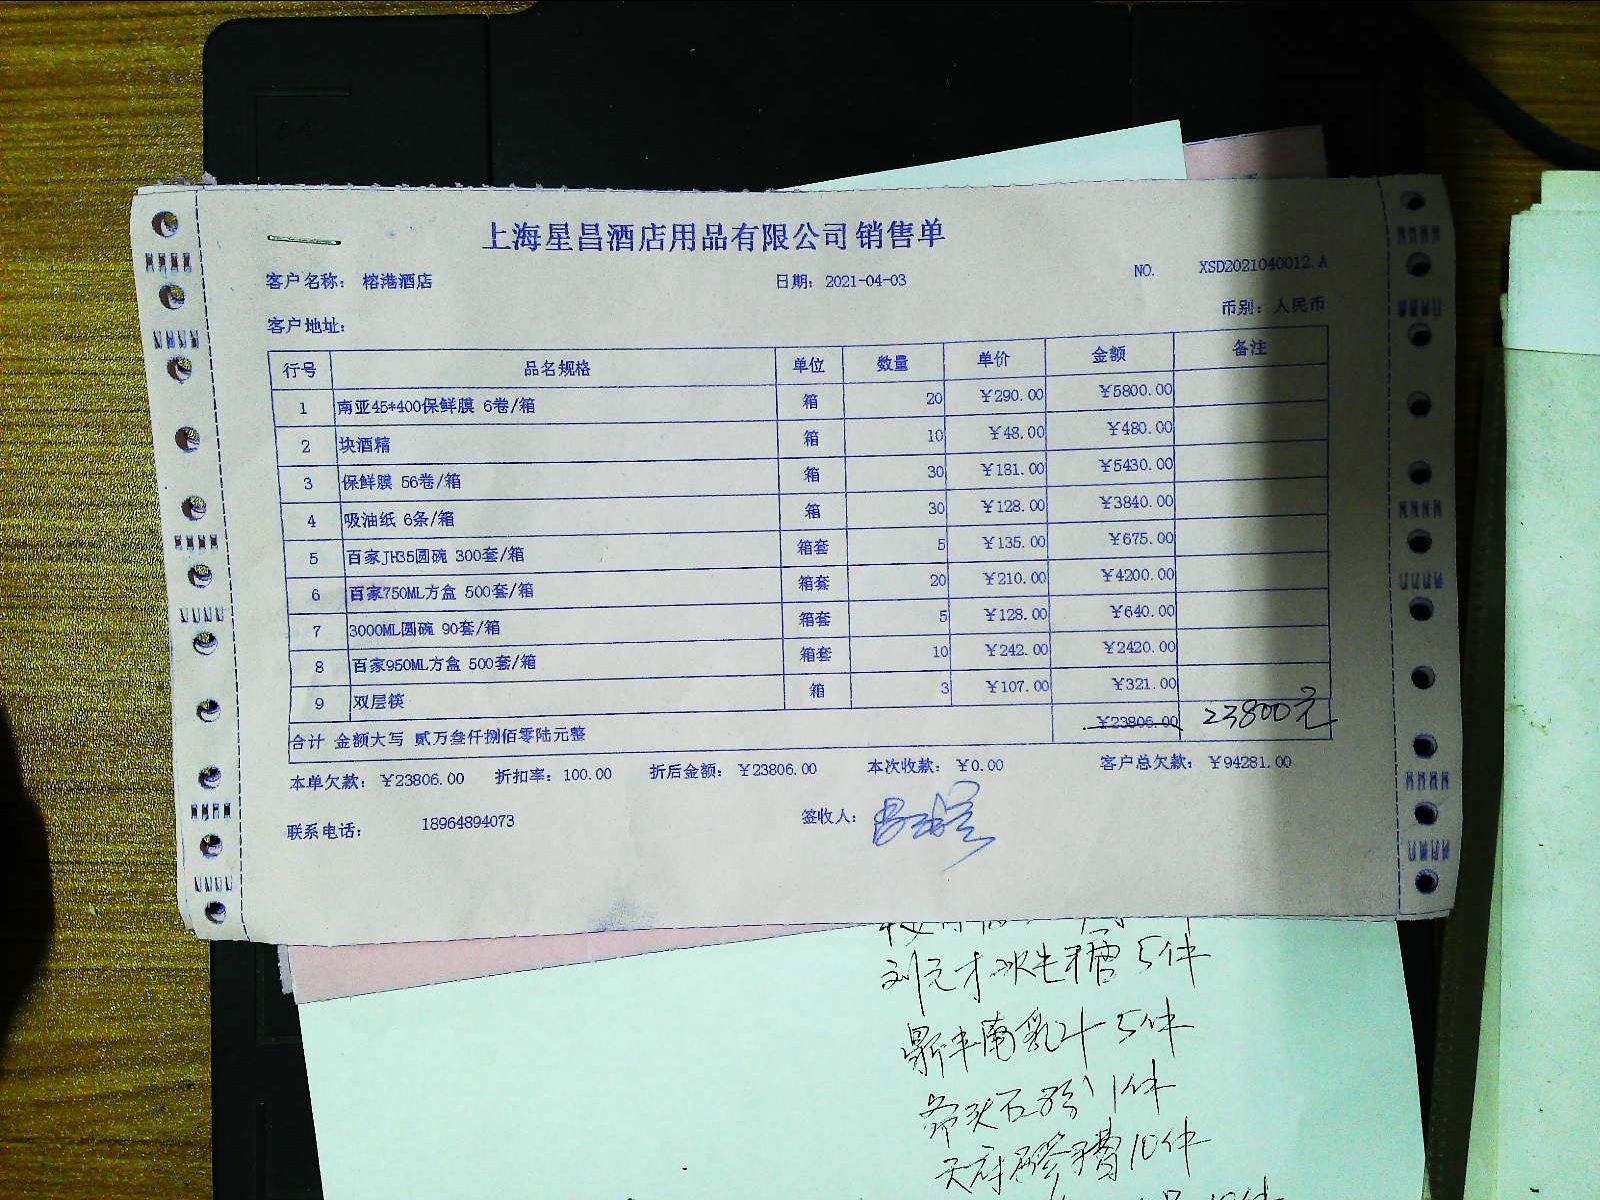 上海星昌酒店用品有限公司销售单
客户名称： 榕港酒店 日期：2021-04-03 NO. XSD2021040012.A
客户地址： 币别：人民币
行号 品名规格 单位 数量 单价 金额 备注
1 南亚45*400保鲜膜 6卷/箱 箱 20 ￥290.00 ￥5800.00
2 块酒精 箱 10 ￥48.00 ￥480.00
3 保鲜膜 56卷/箱 箱 30 ￥181.00 ￥5430.00
4 吸油纸 6条/箱 箱 30 ￥128.00 ￥3840.00
5 百家JH35圆碗 300套/箱 箱套 5 ￥135.00 ￥675.00
6 百家750ML方盒 500套/箱 箱套 20 ￥210.00 ￥4200.00
7 3000ML圆碗 90套/箱 箱套 5 ￥128.00 ￥640.00
8 百家950ML方盒 500套/箱 箱套 10 ￥242.00 ￥2420.00
9 双层筷 箱 3 ￥107.00 ￥321.00
合计 金额大写 贰万叁仟捌佰零陆元整 ￥23806.00 23800元
本单欠款：￥23806.00 折扣率：100.00 折后金额：￥23806.00 本次收款：￥0.00 客户总欠款：￥94281.00
联系电话： 18964894073 签收人：
5件
南乳汁 5件
1件
10件